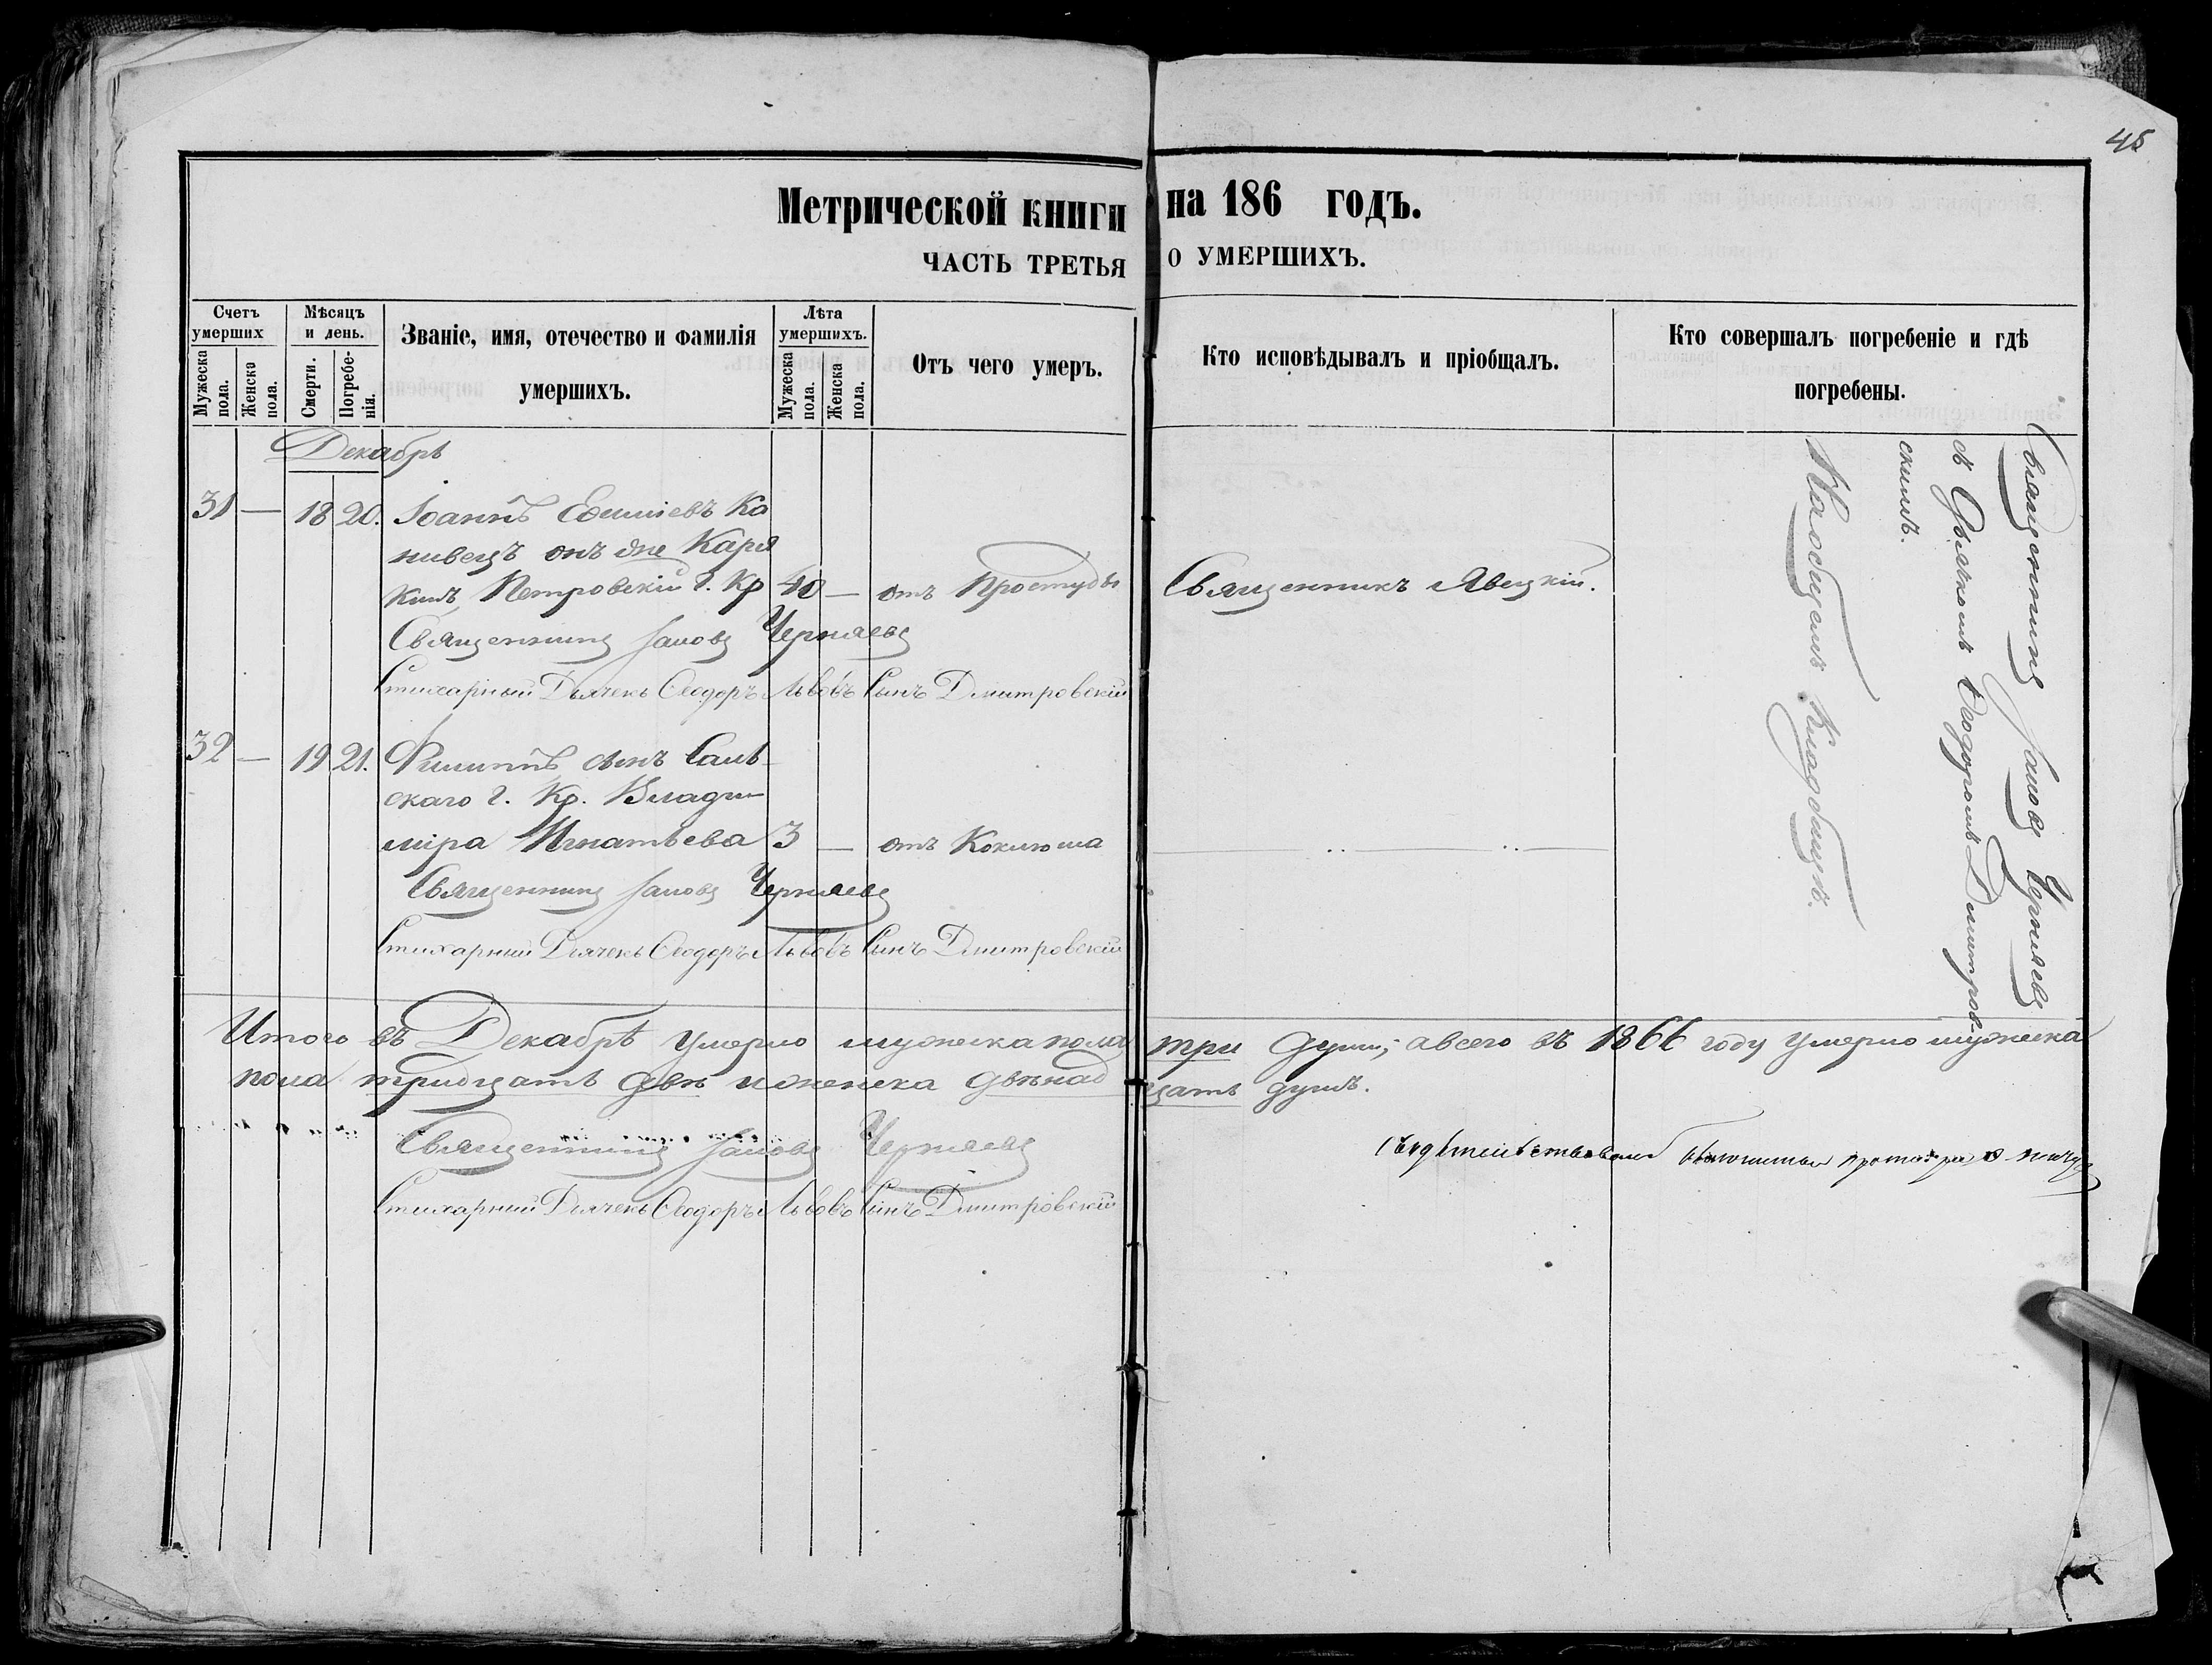 45
Метрической книги на 186 годъ.
ЧАСТЬ ТРЕТЬЯ О УМЕРШИХЪ.
Счетъ умершихъ
Мужеска пола.
Женска пола.
Мѣсяцъ и день.
Смерти.
Погребенія.
Званіе, имя, отечество и фамилія умершихъ.
Лѣта умершихъ.
Мужеска пола.
Женска пола.
Отъ чего умеръ.
Кто исповѣдывалъ и пріобщалъ.
Кто совершалъ погребеніе и гдѣ погребены.
Декабрь
31 — 18 20. Іоаннъ Ка
нивецъ онъ же Каря
кинъ, Петровскій Г. Кр 40 — отъ Простуды Священникъ Явецкій.
Священникъ Іаковъ Черняевъ
Стихарный Дьячекъ Ѳеодоръ Львовъ Сынъ Дмитровскій
32 — 19 21. Филиппъ сынъ
скаго Г. Кр. Влади
міра Игнатьева 3 — отъ Коклюша
Священникъ Іаковъ Черняевъ
Стихарный Дьячекъ Ѳеодоръ Львовъ Сынъ Дмитровскій
Священникъ Іаковъ Черняевъ
съ Дьячкомъ Ѳеодоромъ Дмитров-
скимъ.
На общемъ Кладбищѣ.
Итого въ Декабрѣ умерло мужеска пола три души; а всего въ 1866 году умерло мужеска
пола тридцать две и женска двѣнадцать душъ.
Священникъ Іаковъ Черняевъ
Стихарный Дьячекъ Ѳеодоръ Львовъ Сынъ Дмитровскій